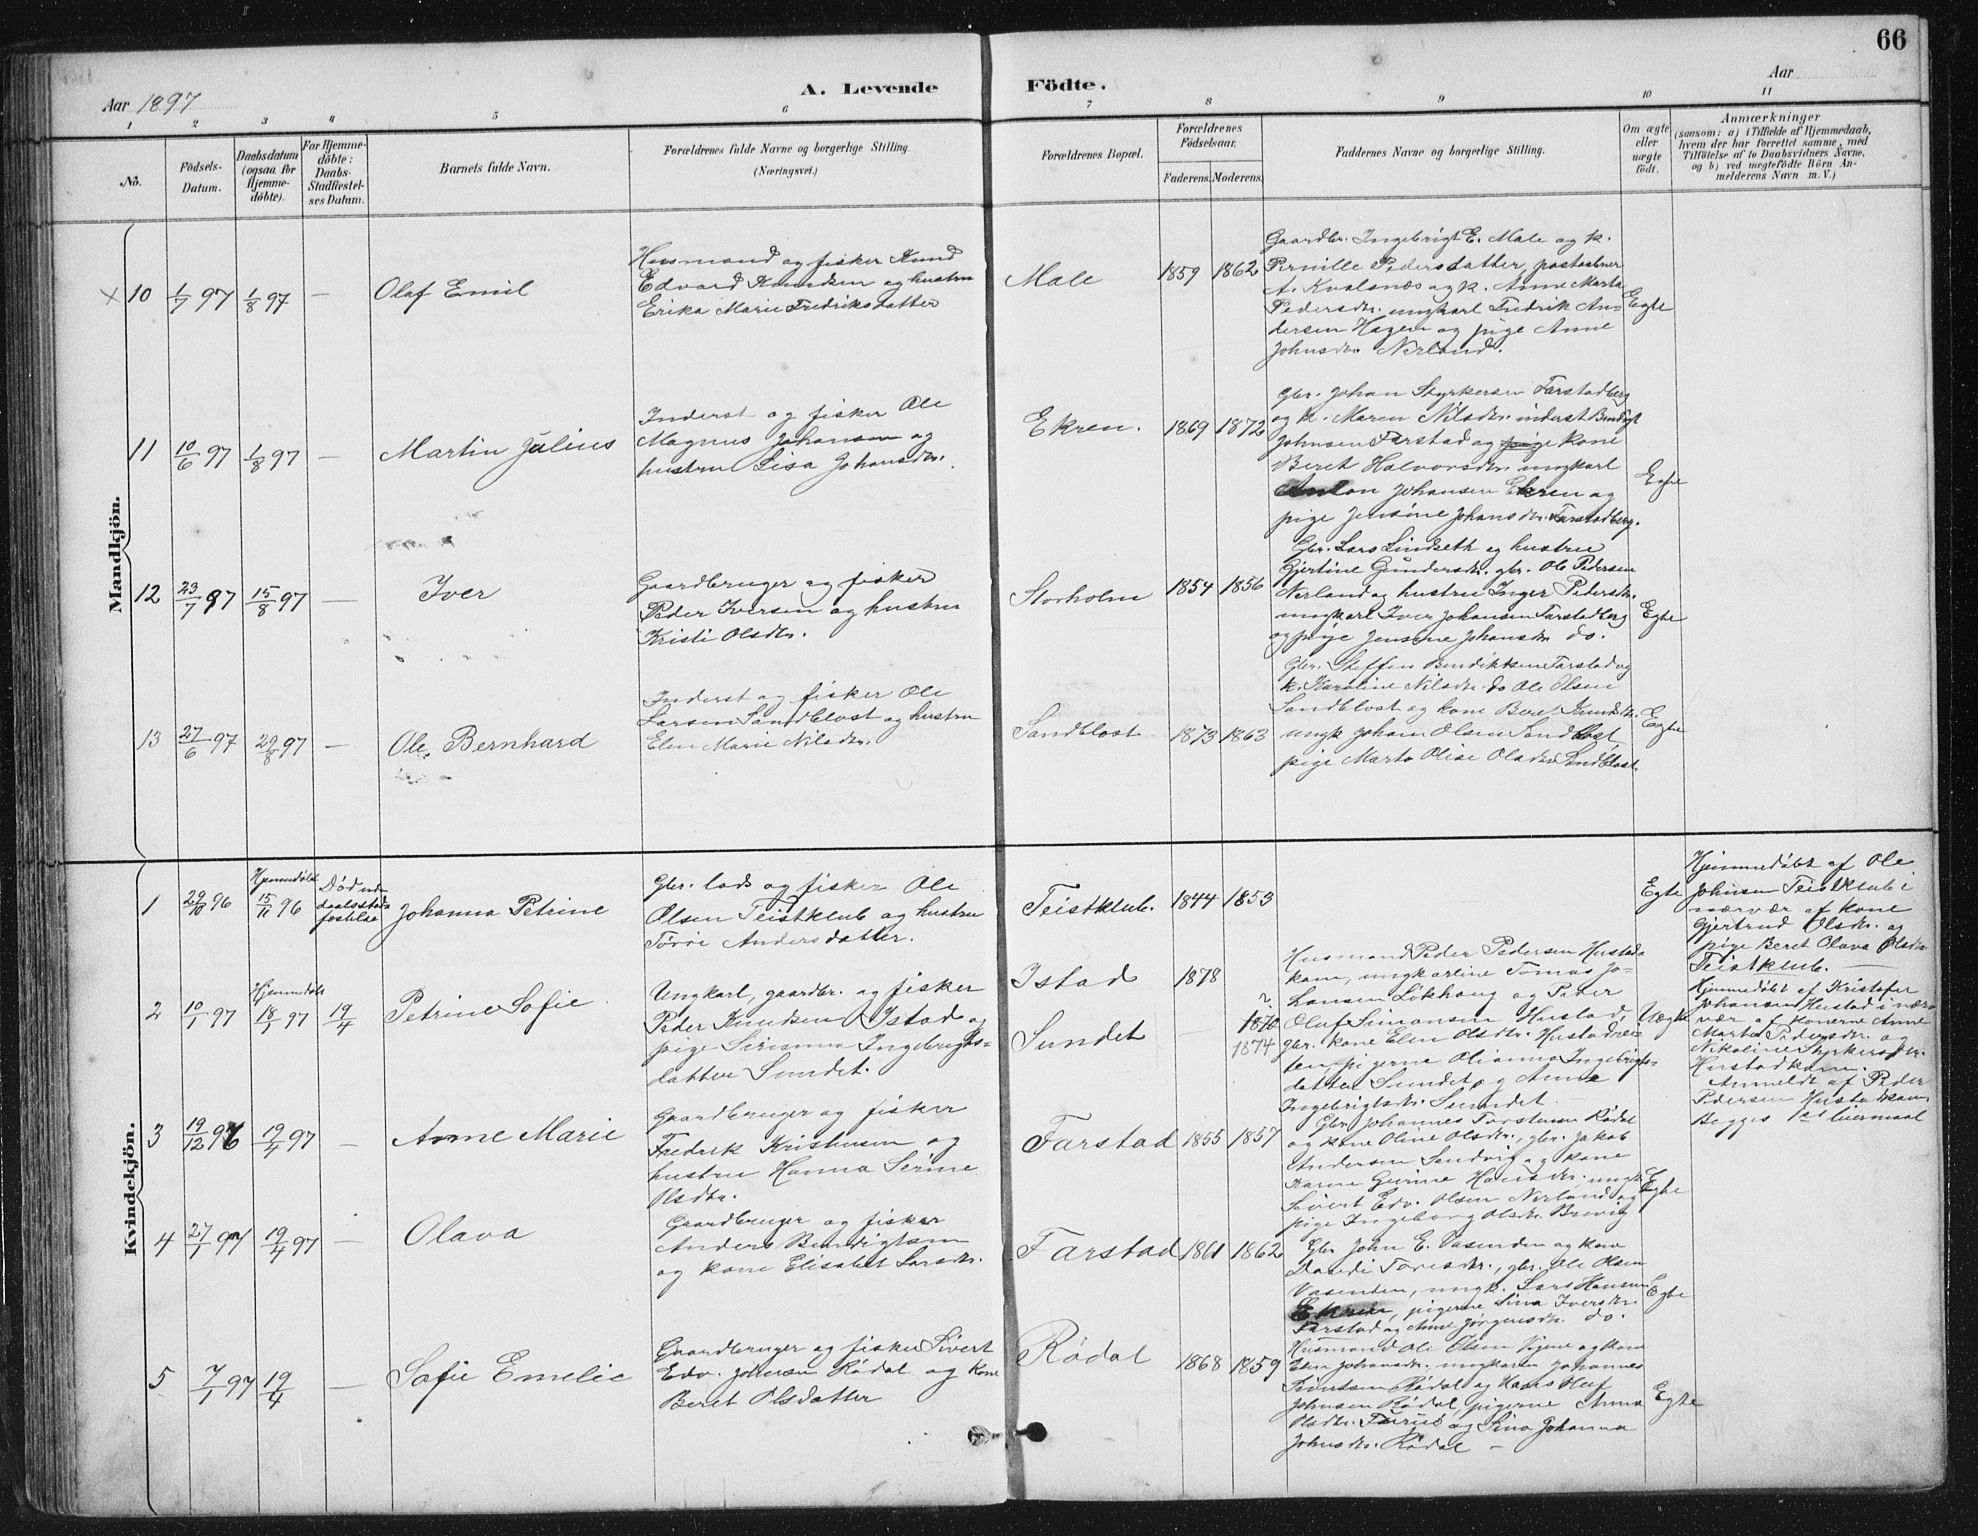 66
Aar 1897
A. Levende
Födte.
Aar
1
2
3
4
5
6
7
8
9
10
11
No.
Födsels-
Datum.
Daabsdatum
(ogsaa for
Hjemme-
döbte).
For Hjemme-
döbte:
Daabs-
Stadfestel-
ses Datum.
Barnets fulde Navn.
Forældrenes fulde Navne og borgerlige Stilling.
(Næringsvei.)
Forældrenes Bopæl.
Forældrenes
Födselsaar.
Faderens.
Moderens.
Faddernes Navne og borgerlige Stilling.
Om ægte
eller
uægte
födt.
Anmærkninger
(saasom: a) i Tilfælde af Hjemmedaab,
hvem der har forrettet samme, med
Tilföielse af to Daabsvidners Navne,
og b) ved uægtefödte Börn An-
melderens Navn m. V.)
Mandkjön.
× 10
1/7 97
1/8 97
—
Olaf Emil
Husmand og fisker Knud
Edvard Knudsen og hustru
Erika Marie Fredriksdatter
Male
1859
1862
Gaardbr. Ingebrigt E. Male og k.
Pernille Pedersdatter, postaabner
A. Kvalsnes og k. Anne Marta
Pedersdtr. ungkarl Fredrik An-
dersen Hagen og pige Anne
Johnsdtr. Nerland.
Egte
11
10/6 97
1/8 97
—
Martin Julius
Inderst og fisker Ole
Magnus Johansen og
hustru Lisa Johansdtr.
Ekren.
1869
1872
Gbr. Johan Styrkersen Farstadberg
og k. Maren Nilsdtr. inderst Bendigt
Johnsen Farstad og pige kone
Beret Halvorsdtr. ungkarl
Anton Johansen Ekren og
pige Jensine Johansdtr. Farstadberg.
Egte
12
23/7 97
15/8 97
—
Iver
Gaardbruger og fisker
Peder Iversen og hustru
Kristi Olsdtr.
Storholm
1854
1856
Gbr. Lars Lindseth og hustru
Gjertine Gundersdtr. gbr. Ole Pedersen
Nerland og hustru Inger Pedersdtr.
ungkarl Iver Johansen Farstadberg
og pige Jensine Johansdtr do.
Egte
13
27/6 97
29/8 97
—
Ole Bernhard
Inderst og fisker Ole
Larsen Sandblost og hustru
Elen Marie Nilsdtr.
Sandblost
1873
1863
Gbr. Steffen Bendiktsen Farstad og
k. Karoline Nilsdtr. do Ole Olsen
Sandblost og kone Beret Knudsdtr.
ungk Johan Olsen Sandblost,
pige Marta Olise Olsdtr Sandblost.
Egte
Kvindekjön.
1
29/10 96
Hjemmedøbt
15/11 96
Død uden
daabsstad-
festelse
Johanna Petrine
Gbr. lods og fisker Ole
Olsen Teistklub og hustru
Andersdatter.
Teistklub.
1844
1853
Egte
Hjemmedøbt af Ole
Johnsen Teistklub i
nærvær af kone
Gjertrud Olsdtr. og
pige Beret Olava Olsdtr
Teistklub. —
2
10/1 97
Hjemmedøbt
18/1 97
19/4
Petrine Sofie
Ungkarl, gaardbr. og fisker
Peder Knudsen Istad og
pige Sirianna Ingebrigts-
datter Sundet.
Istad
Sundet
1878
?
1870
1874
Husmand Peder Pedersen Hustad-
kam, ungkarlene Tomas Jo-
hansen Løkhaug og Peder
Oluf Simonsen Hustad,
gbr. kone Elen Olsdtr. Hustadvei-
ten, pigerne Olianna Ingebrigts-
datter Sundet og Anne
Ingebrigtsdtr. Sundet. —
Uægte
Hjemmedøbt af Kristofer
Johansen Hustad i nær-
vær af konerne Anne
Marta Pedersdtr. og
Nikoline Styrkersdtr.
Hustadkam.
Anmeldt af Peder
Pedersen Hustadkam.
Begges 1ste leiermaal
3
19/12 96
19/4 97
—
Anne Marie
Gaardbruger og fisker
Fredrik Kristensen og
hustru Hanna Serine
Olsdtr.
Farstad
1855
1857
Gbr Johannes Torstensen Rødal
og kone Oline Olsdtr., gbr. Jakob
Andersen Sandvig og kone
Karen Gurine Hansdtr., ungk.
Sivert Edv. Olsen Nerland og
pige Ingeborg Olsdtr. Brevig
Egte
4
27/1 97
19/4 97
—
Olava
Gaardbruger og fisker
Anders Bendigtsen
og kone Elisabet Larsdtr.
Farstad
1861
1862
Gbr John E. Vasenden og kone
Toresdtr., gbr. Ole Olsen
Vasenden, ungk. Lars Hansen
Ekren, pigerne Sina Iversdtr.
Farstad og Anne Jørgensdtr. do.
Egte
5
7/1 97
19/4
—
Sofie Emelie
Gaardbruger og fisker Sivert
Edv. Johnsen Rødal og kone
Beret Olsdatter
Rødal
1868
1859
Husmand Ole Olsen Vigene og kone
Johansdtr. ungkarlene Johannes
Sivertsen Rødal og Hans Oluf
Johnsen Rødal, pigerne Anna
Olsdtr. og Sina Johanna
Johnsdtr. Rødal —
Egte